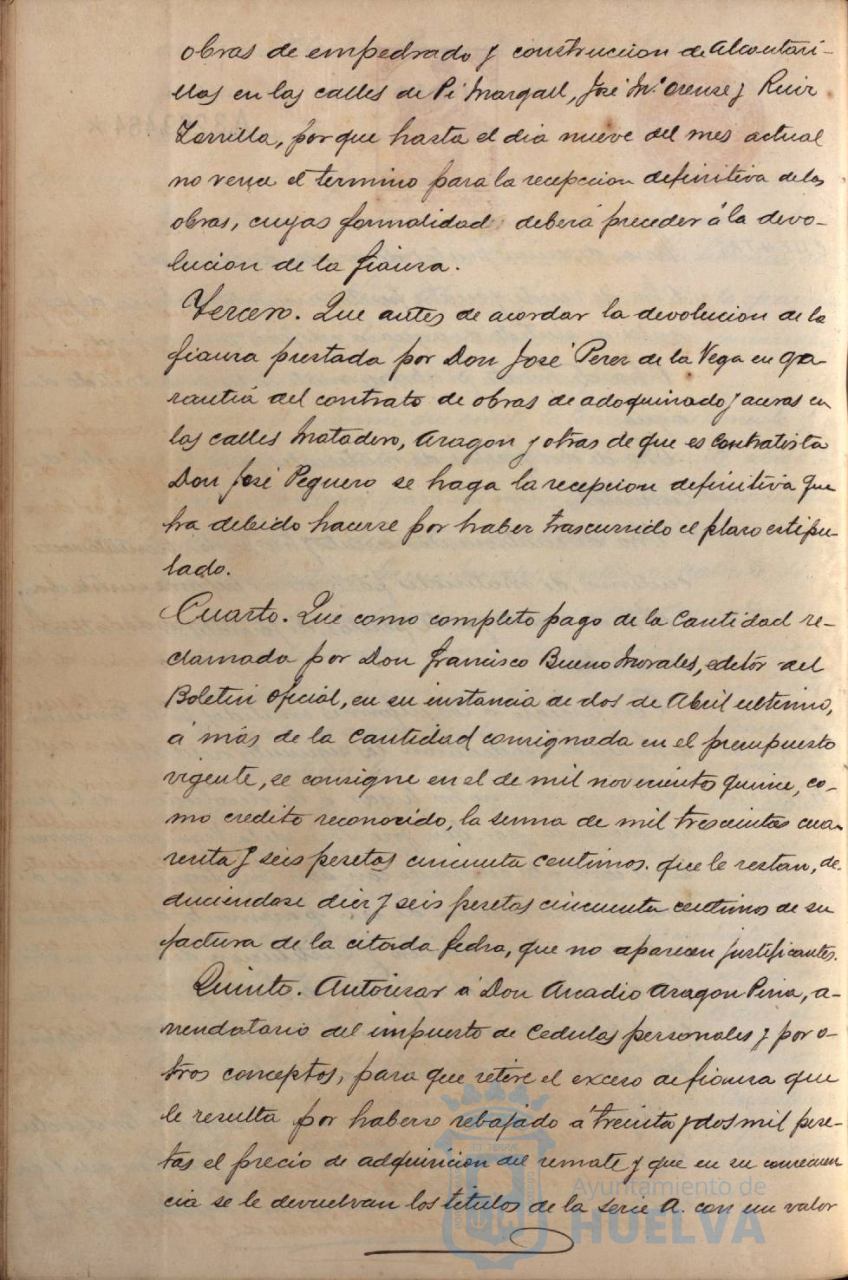 obras de empedrado y construccion de Alcantari-
llas en las calles de Pi Margall, José Mª Orense y Ruiz
Zorrilla, porque hasta el dia nueve del mes actual
no vence el termino para la recepcion definitiva de las
obras, cuyas formalidad deberá preceder á la devo-
lucion de la fianza.
Tercero. Que antes de acordar la devolucion de la
fianza prestada por Don José Perez de la Vega en ga-
rantia del contrato de obras de adoquinado y aceras en
las calles Matadero, Aragon y otras de que es contratista
Don José Peguero se haga la recepcion definitiva que
ha debido hacerse por haber trascurrido el plazo estipu-
lado.
Cuarto. Que como completo pago de la cantidad re-
clamada por Don Francisco Bueno Morales, editor del
Boletin oficial, en su instancia de dos de Abril ultimo,
á más de la cantidad consignada en el presupuesto
vigente, se consigne en el de mil novecientos quince, co-
mo credito reconocido, la suma de mil trescientas cua-
renta y seis pesetas cincuenta centimos que le restan, de-
duciendose diez y seis pesetas cincuenta centimos de su
factura de la citada fecha, que no aparecen justificantes.
Quinto. Autorizar á Don Arcadio Aragon Pina, a-
rrendatario del impuesto de Cedulas personales y por o-
tros conceptos, para que retire el exceso de fianza que
le resulta por haberse rebajado á treinta y dos mil pese-
tas el precio de adquisicion del remate y que en su consecuen
cia se le devuelvan los titulos de la serie A. con un valor
Ayuntamiento de
HUELVA